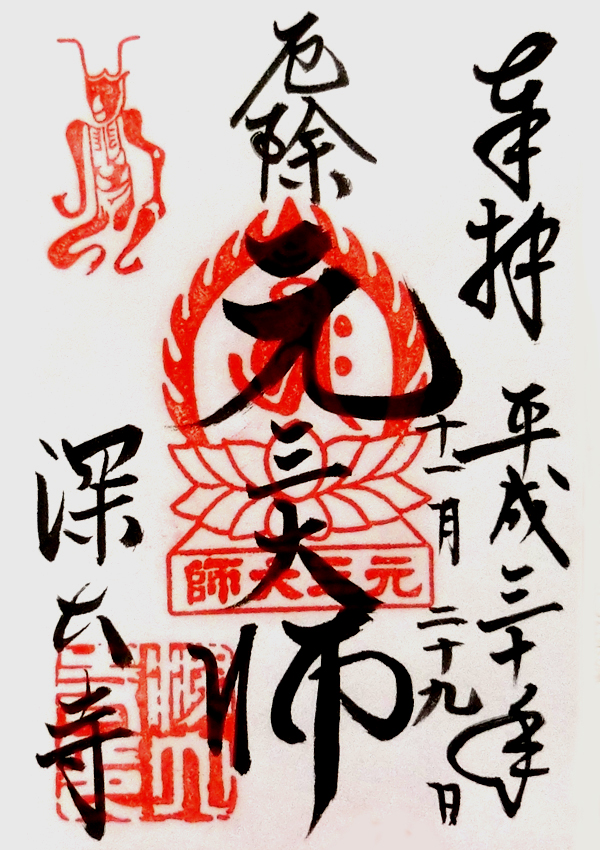 奉拝
平成三十年
十一月二十九日
厄除
元三大師
元三大師
深大寺